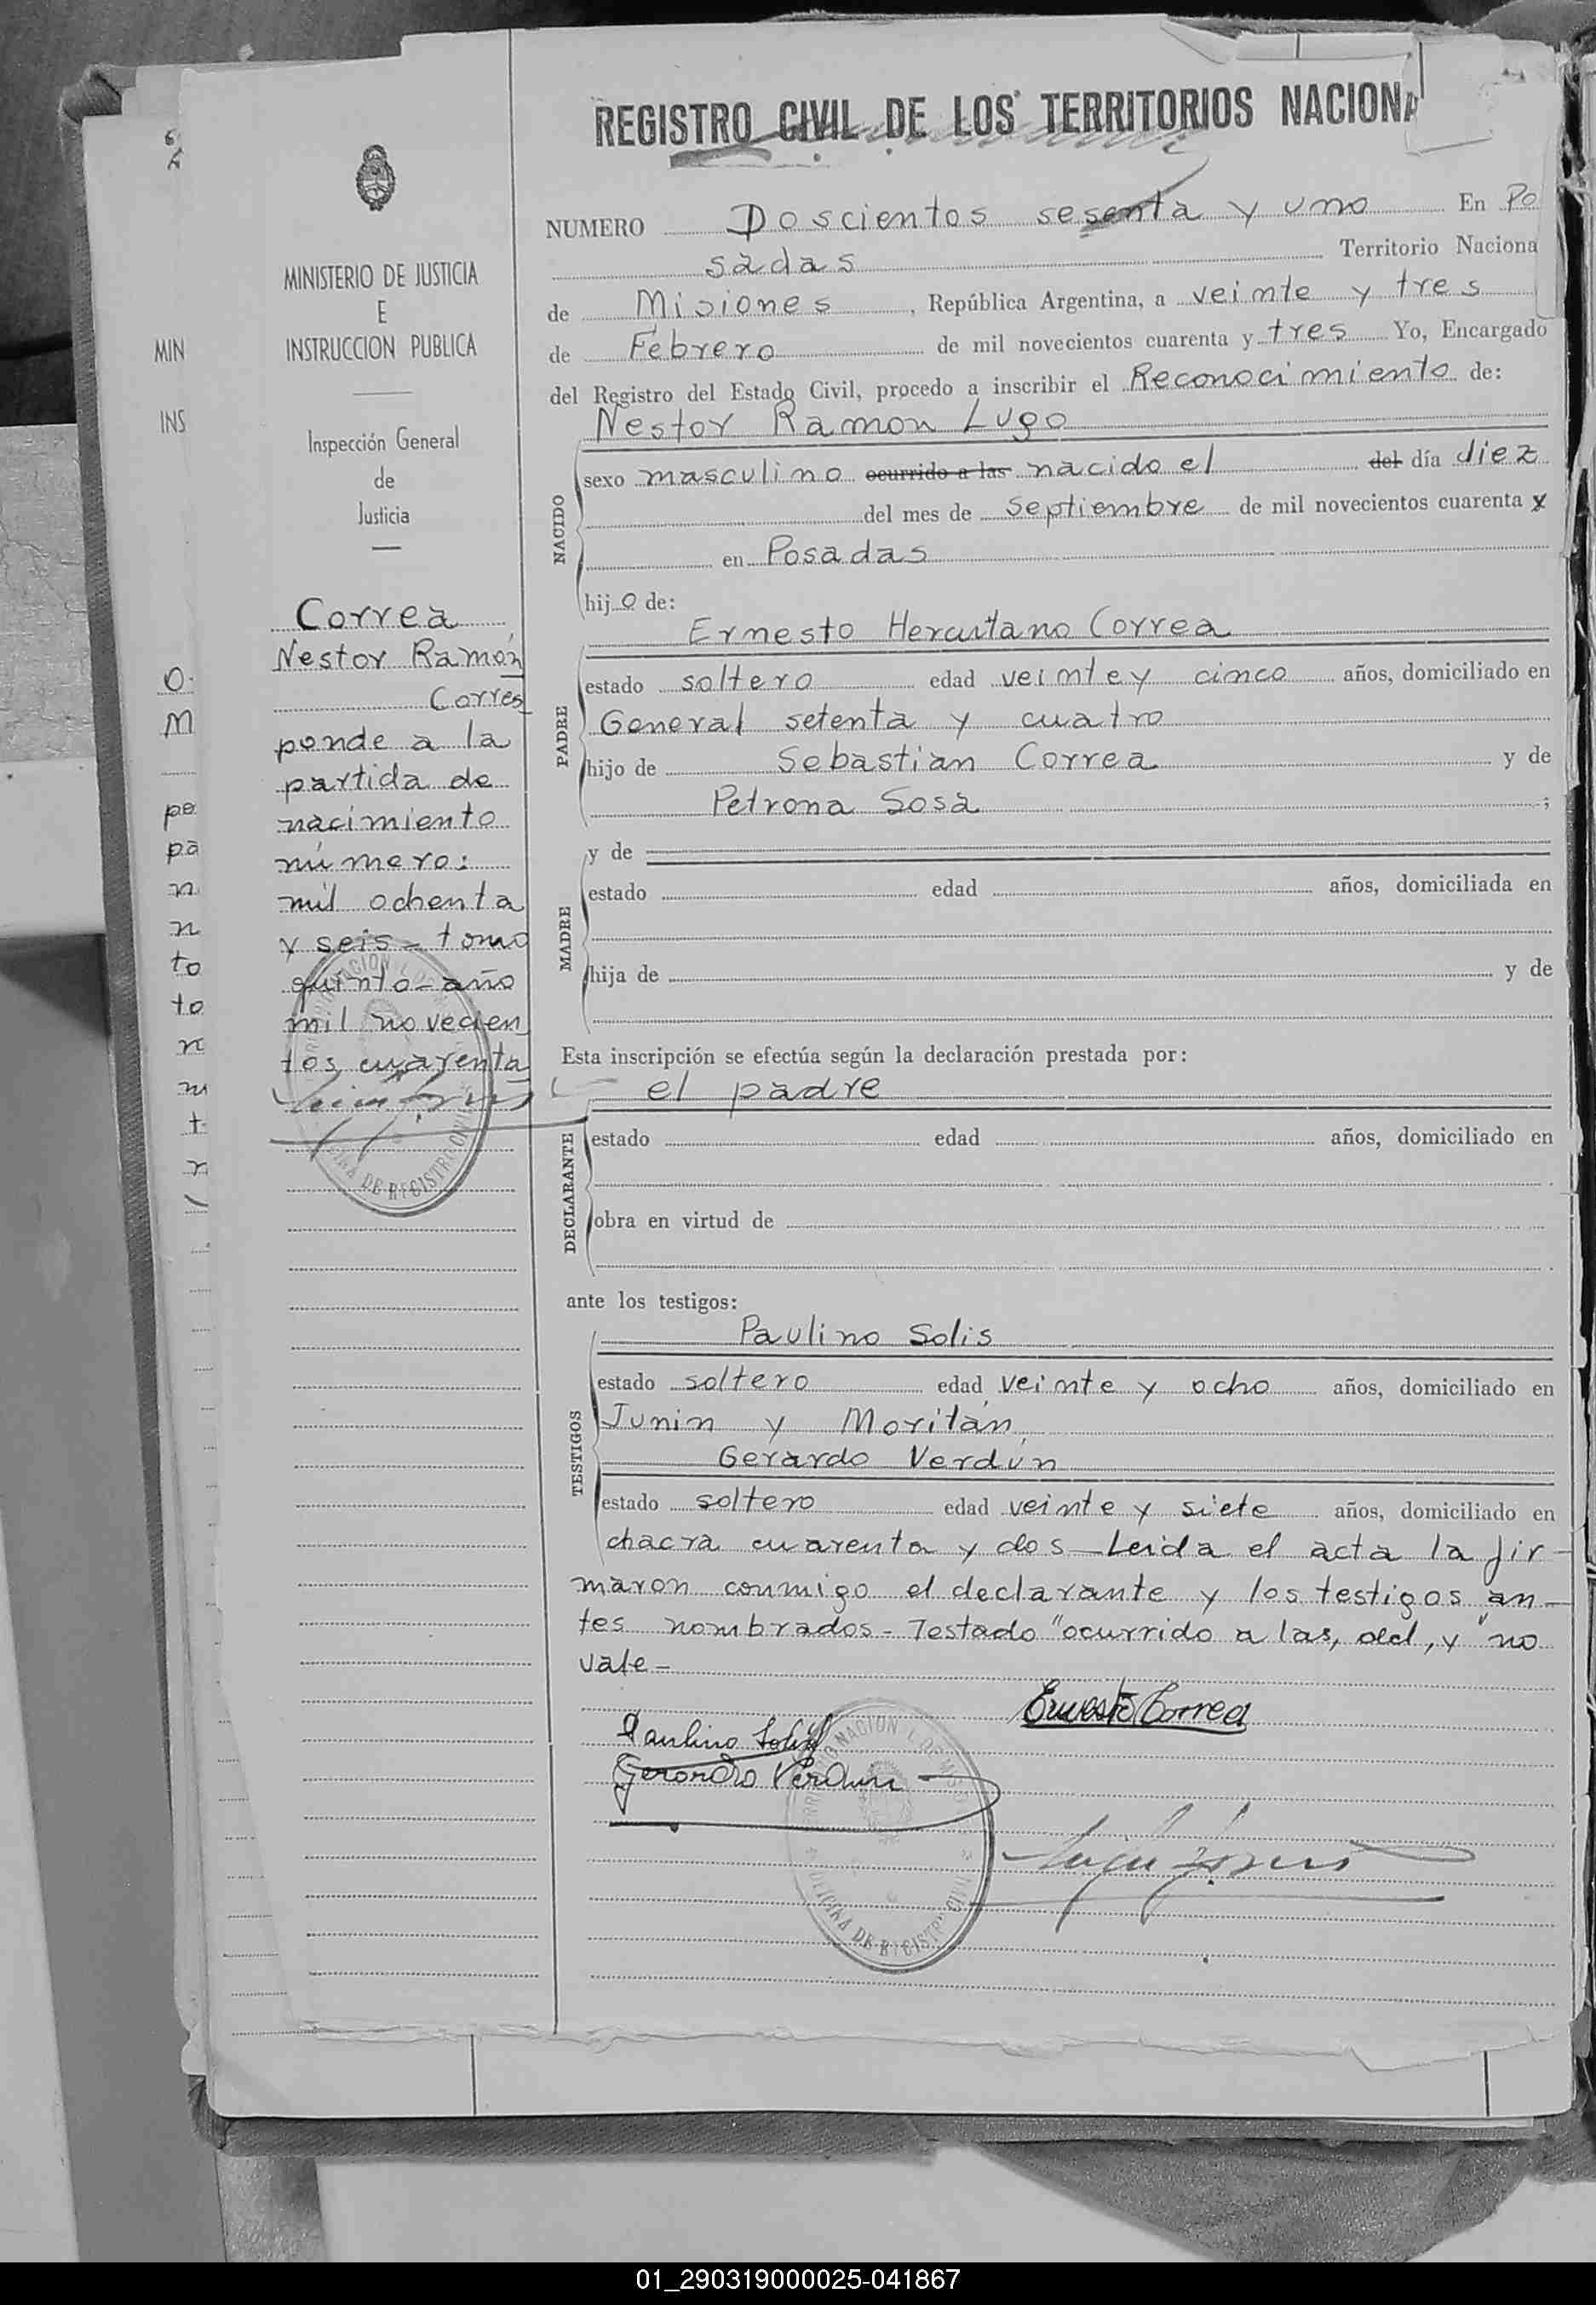 REGISTRO CIVIL DE LOS TERRITORIOS NACIONA
NUMERO Doscientos sesenta y uno En Po
sadas Territorio Naciona
de Misiones, República Argentina, a veinte y tres
de Febrero de mil novecientos cuarenta y tres Yo, Encargado
del Registro del Estado Civil, procedo a inscribir el Reconocimiento de:
Nestor Ramon Lugo
NACIDO
sexo masculino ocurrido a las nacido el del día diez
del mes de septiembre de mil novecientos cuarenta y
en Posadas
hijo de:
Ernesto Herculano Correa
PADRE
estado soltero edad veinte y cinco años, domiciliado en
General setenta y cuatro
hijo de Sebastian Correa y de
Petrona Sosa ;
y de
MADRE
estado edad años, domiciliada en
hija de y de
Esta inscripción se efectúa según la declaración prestada por:
el padre
DECLARANTE
estado edad años, domiciliado en
obra en virtud de
ante los testigos:
Paulino Solis
TESTIGOS
estado soltero edad veinte y ocho años, domiciliado en
Junin y Moritán
Gerardo Verdún
estado soltero edad veinte y siete años, domiciliado en
chacra cuarenta y dos - Leida el acta la fir-
maron conmigo el declarante y los testigos an-
tes nombrados - Testado "ocurrido a las, del, y" no
vale -
Ernesto Correa
Paulino Solis
Gerardo Verdun
OFICINA DE REGISTRO CIVIL
MINISTERIO DE JUSTICIA
E
INSTRUCCION PUBLICA
Inspección General
de
Justicia
Correa
Nestor Ramón
Corres
ponde a la
partida de
nacimiento
número:
mil ochenta
y seis - tomo
quinto - año
mil novecien
tos cuarenta
OFICINA DE REGISTRO CIVIL
MIN
INS
O.
M
po
pa
n
n
to
to
m
t
01_290319000025-041867